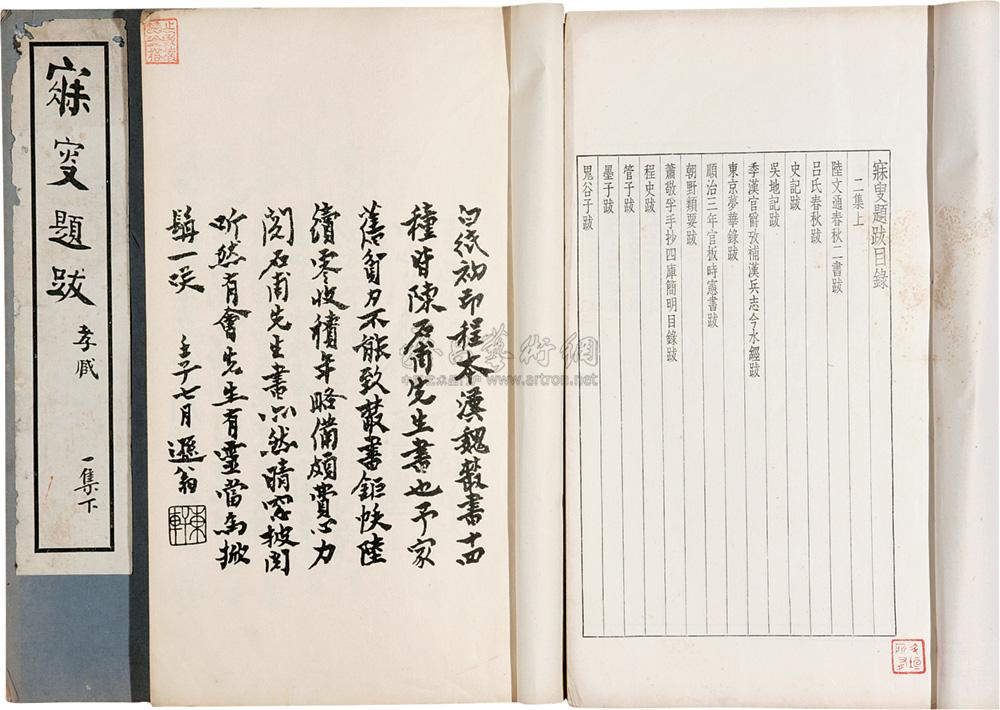 寐叟題跋
孝臧
一集下
白紙初印程本漢魏叢書十四
種皆陳石甫先生書也予家
舊貧力不能致叢書鉅帙陸
續零收積年略備頗費心力
石甫先生書然晴窗披閱
听然有會先生有靈當為掀
髯一笑 壬子七月遯翁
東軒
寐叟題跋目錄
二集上
陸文通春秋二書跋
呂氏春秋跋
史記跋
吳地記跋
季漢官爵攷補漢兵志今水經跋
東京夢華錄跋
順治三年官板時憲書跋
朝野類要跋
蕭敬孚手抄四庫簡明目錄跋
程史跋
管子跋
墨子跋
鬼谷子跋
藝術網
www.artron.net